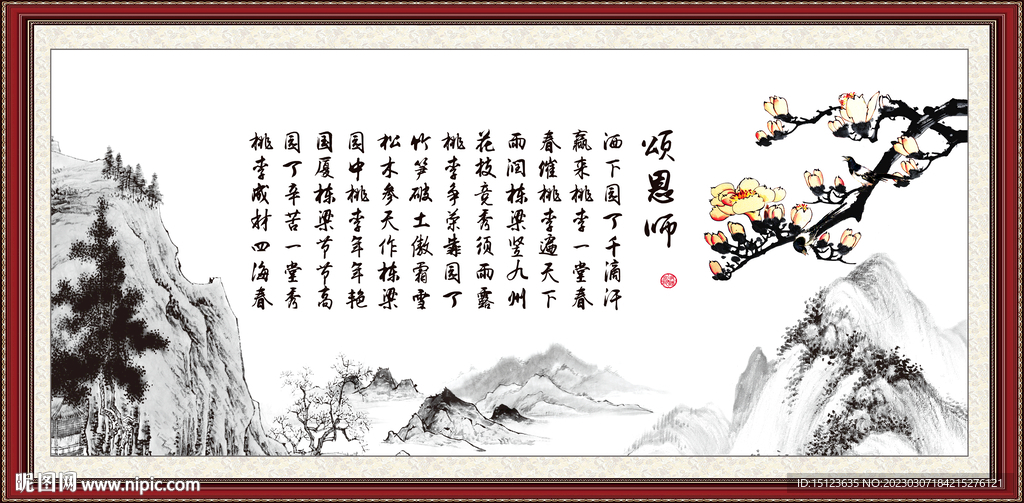 颂恩师
洒下园丁千滴汗
赢来桃李一堂春
春催桃李遍天下
雨润栋梁竖九州
花枝竞秀须雨露
桃李争荣靠园丁
竹笋破土傲霜雪
松木参天作栋梁
园中桃李年年艳
国厦栋梁节节高
园丁辛苦一堂秀
桃李成材四海春
昵图网 www.nipic.com
ID:15123635 NO:20230307184215276121